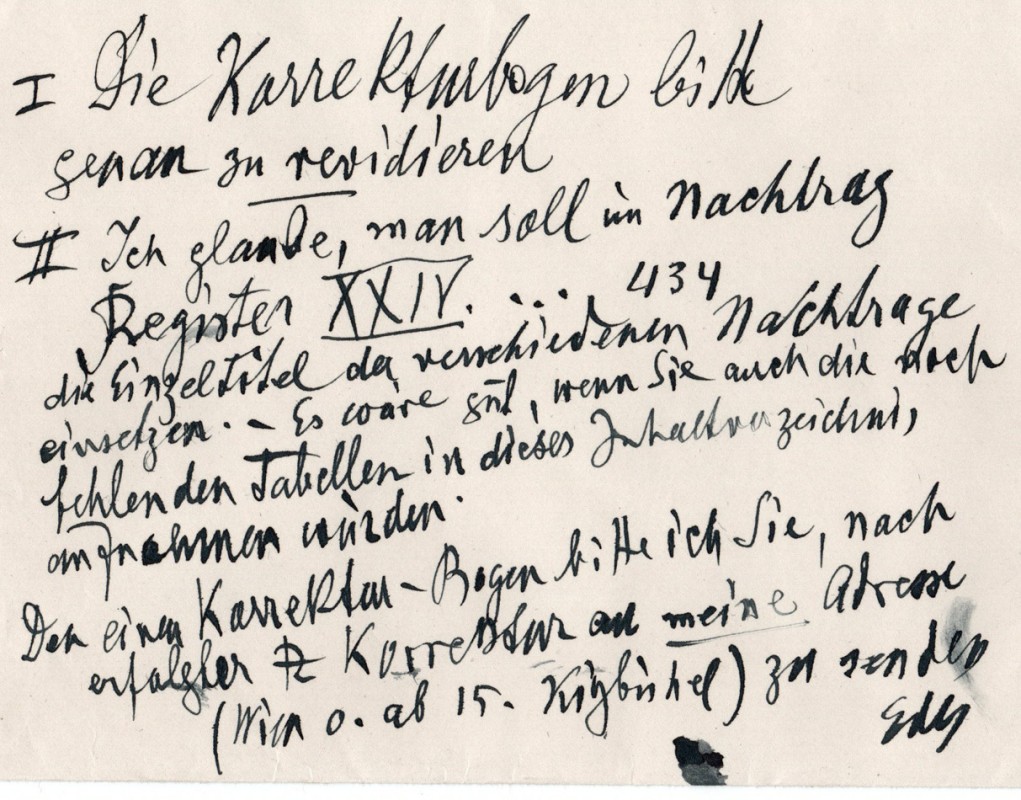 I Die Korrekturbogen bitte
genau zu revidieren
II Ich glaube, man soll im Nachtrag
Register XXIV. ... 434
die Einzeltitel der verschiedenen Nachträge
einsetzen. – Es wäre gut, wenn Sie auch die noch
fehlenden Tabellen in dieses Inhaltverzeichnis
aufnehmen würden.
Den einen Korrektur-Bogen bitte ich Sie, nach
erfolgter Korrektur an meine Adresse
(Wien o. ab 15. Kitzbühel) zu senden